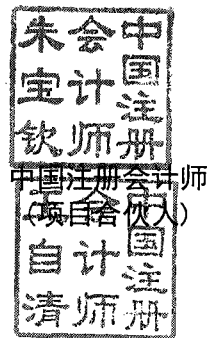 中国注册
会计师
朱宝钦
中国注册会计师
(项目合伙人)
国注册
计师
自清